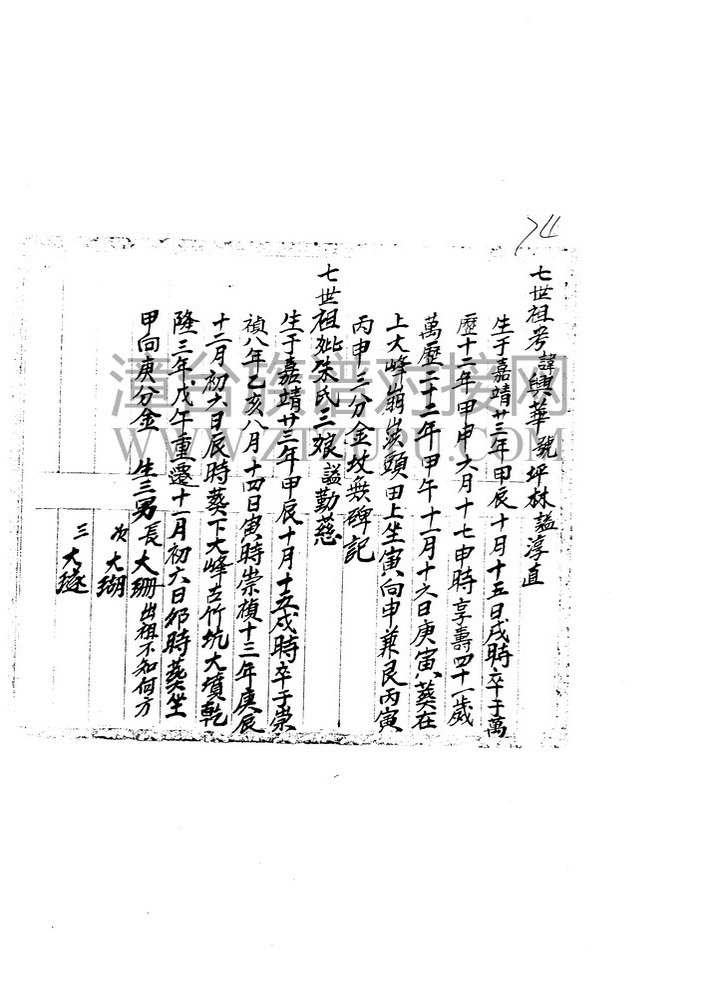 74
七世祖考諱興華號坪林謚淳直
生于嘉靖廿三年甲辰十月十五日戌時卒于萬
歷十二年甲申六月十七申時享壽四十一歲
萬歷二十二年甲午十一月十六日庚寅葬在
上大峰崩崁頭田上坐寅向申兼艮丙寅
丙申三分金坟無碑記
七世祖妣朱氏三娘謚勤慈
生于嘉靖廿三年甲辰十月十五戌時卒于崇
禎八年乙亥八月十四日寅時崇禎十三年庚辰
十二月初六日辰時葬下大峰古竹坑大墳乾
隆三年戊午重遷十一月初六日卯時葬坐
甲向庚分金 生三男長大珊出祖不知何方
次大瑚
三大璲
漳台族谱对接网
WWW.ZTZUPU.COM